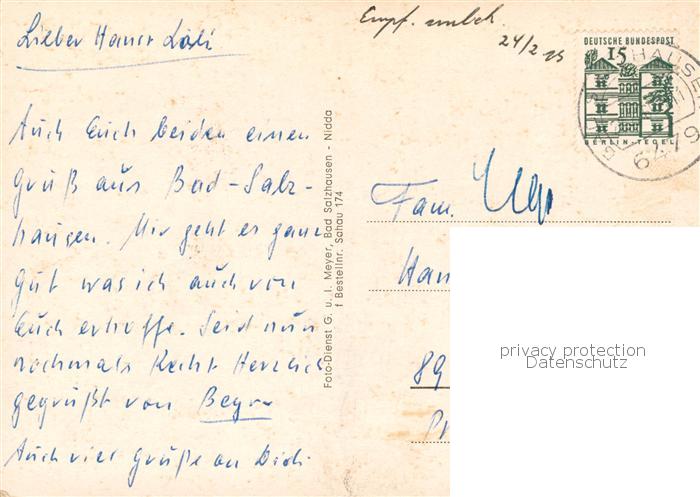 Lieber Hanser Loli
Auch Euch beiden einen
Gruß aus Bad-Salz-
hausen. Mir geht es ganz
gut was ich auch von
Euch erhoffe. Seid nun
nochmals Recht Herzlich
gegrüßt von
Auch vier Grüße an Didi
Foto-Dienst G. u. I. Meyer, Bad Salzhausen - Nidda
f Bestellnr. Sahau 174
Empf.
24/2
DEUTSCHE BUNDESPOST
15
BERLIN-TEGEL
HAUSE
6479
Fam.
Han
89
privacy protection
Datenschutz